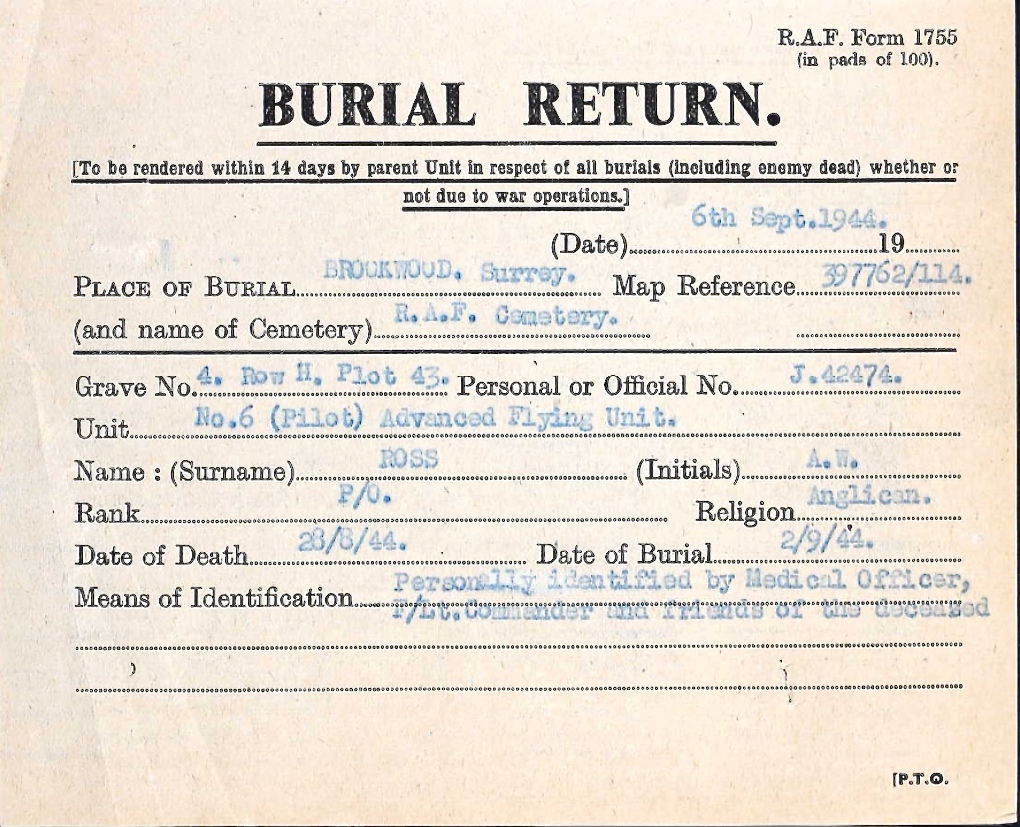 R.A.F. Form 1755
(in pads of 100).
BURIAL RETURN.
[To be rendered within 14 days by parent Unit in respect of all burials (including enemy dead) whether or
not due to war operations.]
6th Sept.1944.
(Date)..........19..........
PLACE OF BURIAL BROOKWOOD. Surrey. Map Reference 397762/114.
(and name of Cemetery) R.A.F. Cemetery.
Grave No. 4. Row H. Plot 43. Personal or Official No. J.42474.
Unit No.6 (Pilot) Advanced Flying Unit.
Name : (Surname) ROSS (Initials) A.W.
Rank P/O. Religion Anglican.
Date of Death 28/8/44. Date of Burial 2/9/44.
Means of Identification Personally identified by Medical Officer,
F/Lt.Commander and friends of the deceased
[P.T.O.